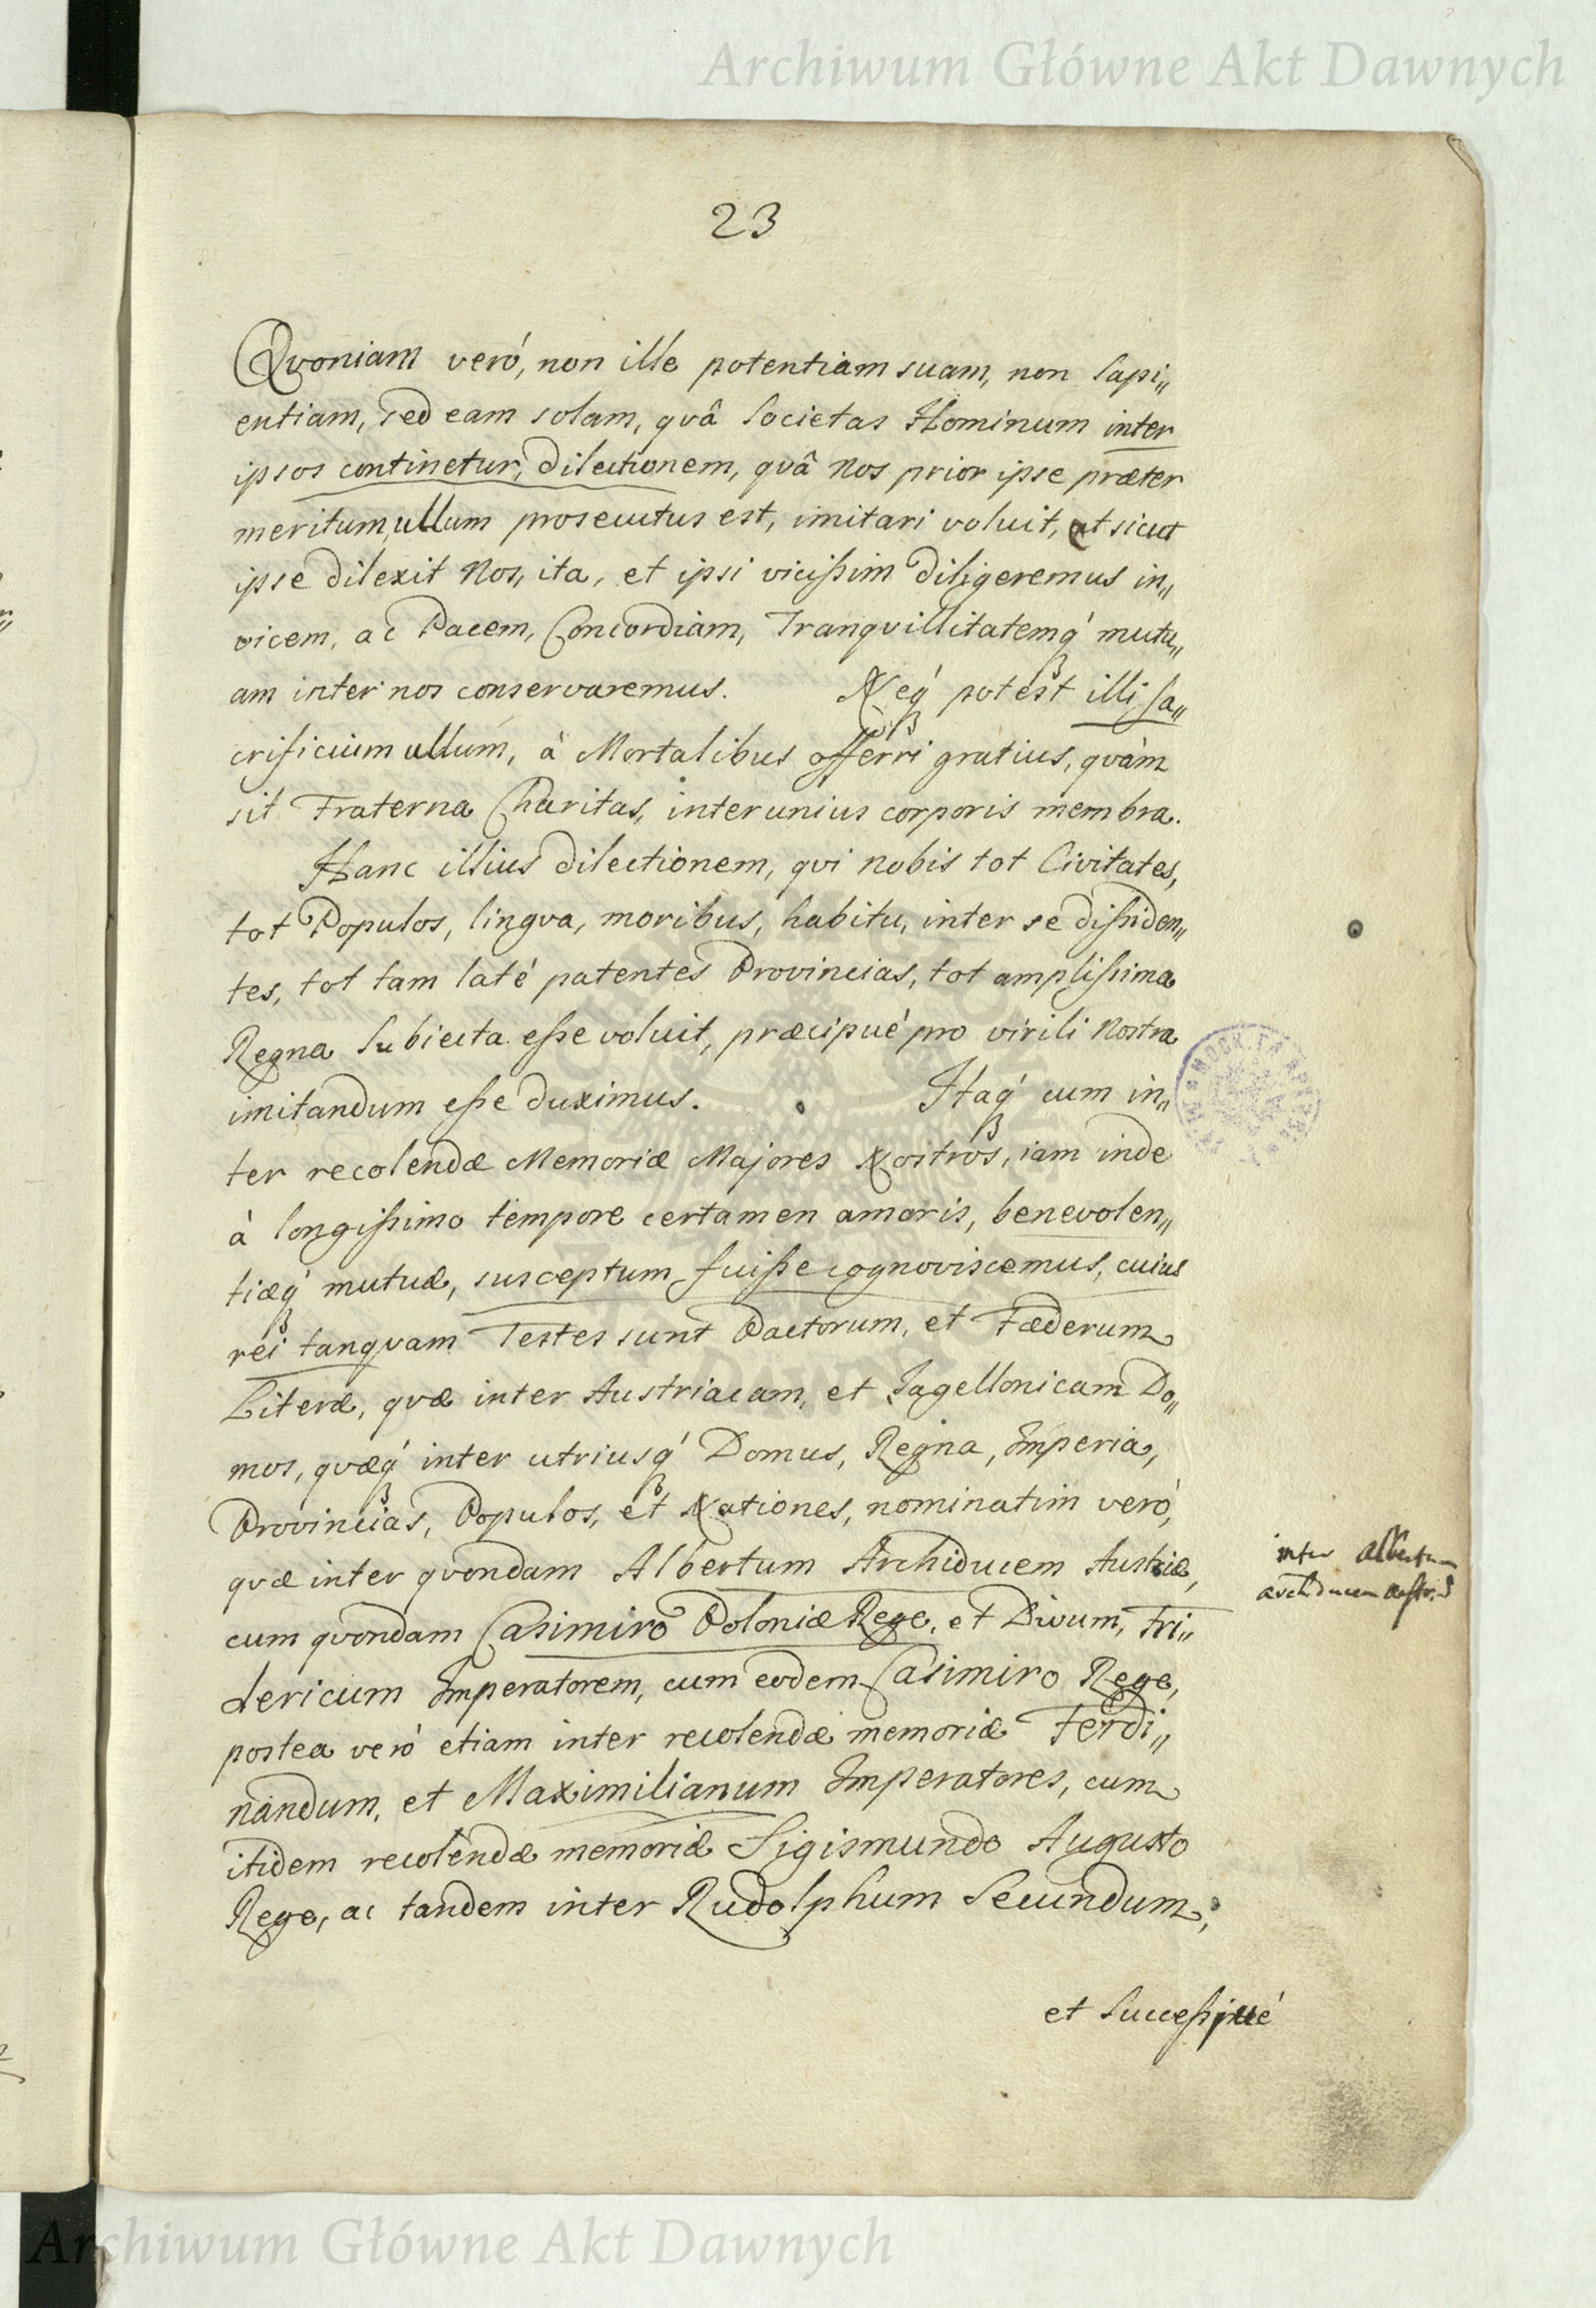 Archiwum Główne Akt Dawnych
23
Qvoniam veró, non ille potentiam suam, non Sapi„
entiam, sed eam solam, qvâ Societas Hominum inter
ipsos continetur, dilectionem, qvâ Nos prior ipse præter
meritum, ullum prosecutus est, imitari voluit, ut sicut
ipse dilexit Nos, ita, et ipsi vicißim diligeremus in„
vicem, ac Pacem, Concordiam, Tranqvillitatemq́ mutu„
am inter nos conservaremus. Neq́ potest illi sa„
crificium ullum, à Mortalibus offerri gratius, qvàm
sit Fraterna Charitas, inter unius corporis membra.
Hanc illius dilectionem, qvi nobis tot Civitates,
tot Populos, lingva, moribus, habitu, inter se dißiden„
tes, tot tam laté patentes Provincias, tot amplißima
Regna Subiecta eße voluit, præcipué pro virili Nostra
imitandum eße duximus. Itaq́ cum in„
ter recolendæ Memoriæ Majores Nostros, iam inde
à longißimo tempore certamen amoris, benevolen„
tiæq́ mutuæ, susceptum fuiße cognoviscemus, cuius
rei tanqvam Testes sunt Pactorum, et Fæderum
Literæ, qvæ inter Austriacam, et Jagellonicam Do„
mos, qvæq́ inter utriusq́ Domus, Regna, Imperia,
Provincias, Populos, et Nationes, nominatim veró,
qvæ inter qvondam Albertum Archiducem Austriæ,
cum qvondam Casimiro Poloniæ Rege, et Divum, Fri„
dericum Imperatorem, cum eodem Casimiro Rege,
postea veró etiam inter recolendæ memoriæ Ferdi„
nandum, et Maximilianum Imperatores, cum
itidem recolendæ memoriæ Sigismundo Augusto
Rege, ac tandem inter Rudolphum Secundum,
et Succeßivé
inter Albertum
archiducem
Archiwum Główne Akt Dawnych